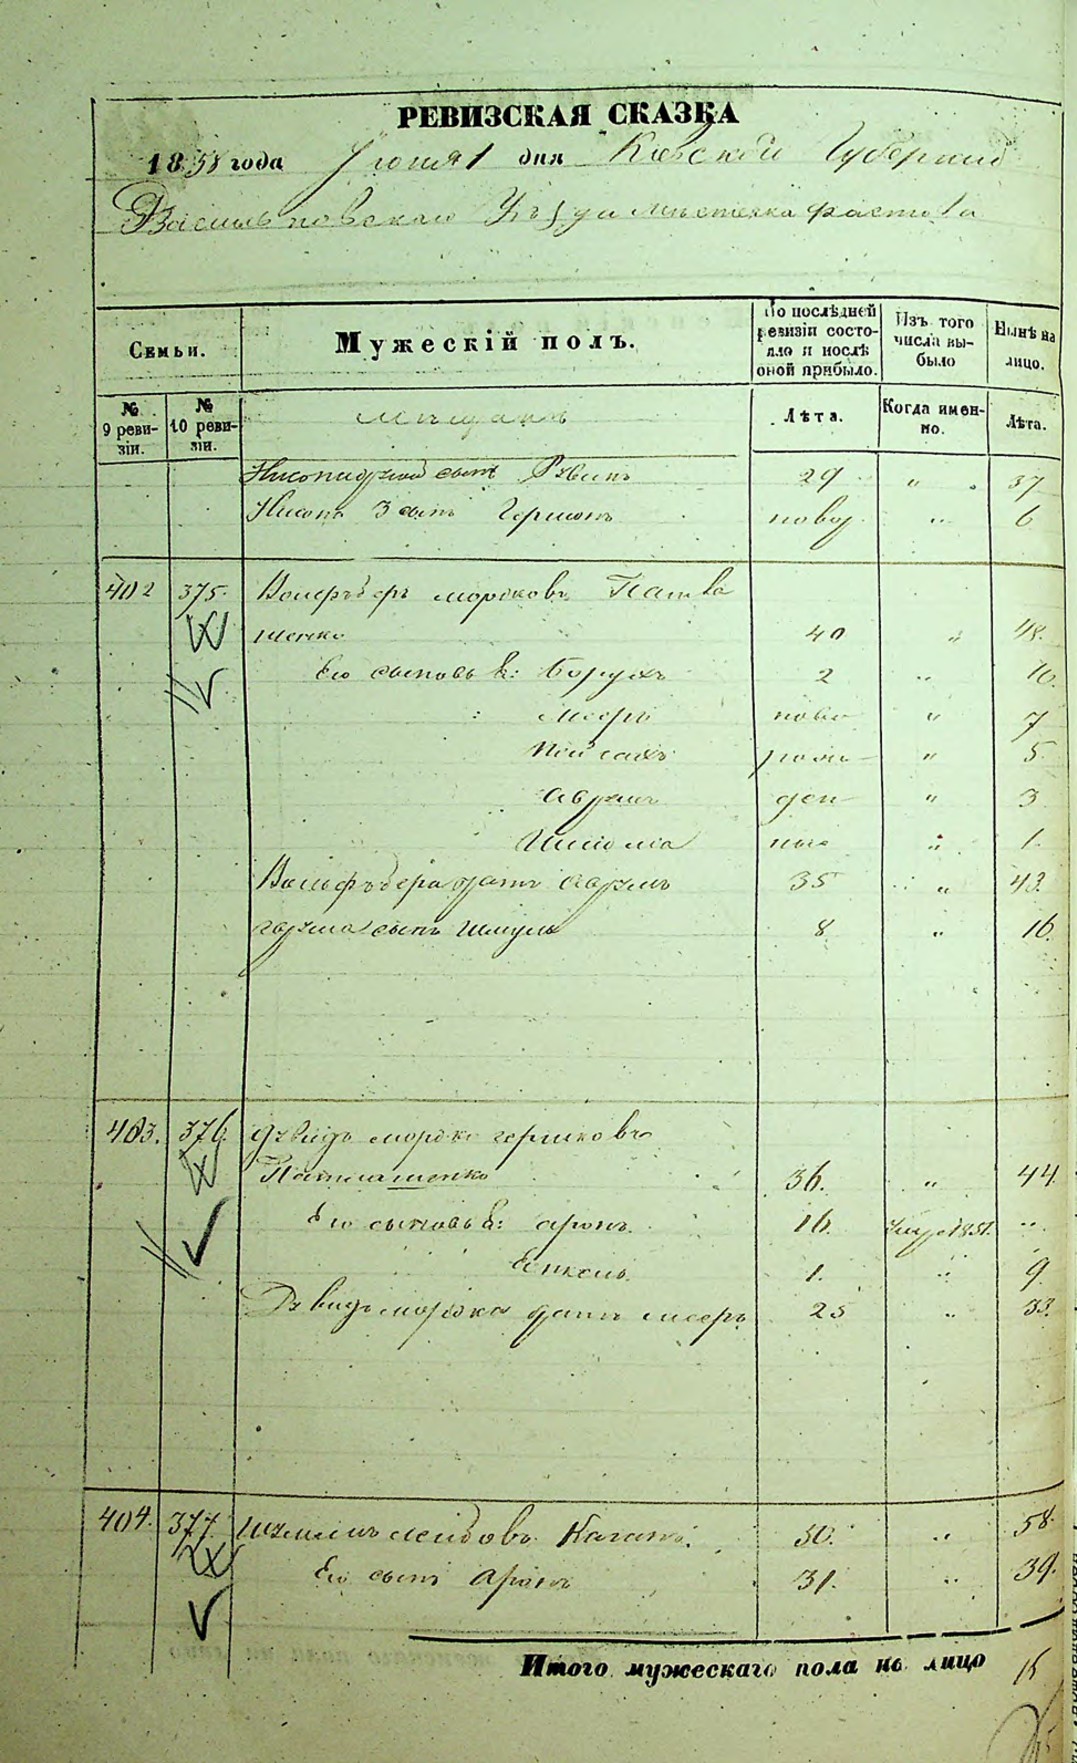 РЕВИЗСКАЯ СКАЗКА
1858 года Июня 1 дня Кіевской Губерніи
Васильковскаго Уѣзда мѣстечка Фастова
Семьи. Мужескій полъ. По послѣдней ревизіи состояло и послѣ оной прибыло. Изъ того числа выбыло Нынѣ на лицо.
№ 9 ревизіи. № 10 ревизіи. мѣщане Лѣта. Когда именно. Лѣта.
сынъ 29 " 37
3 сынъ Гершонъ новор " 6
402 375. Вольфъ Беръ морковъ Патла
шенко 40 " 48.
Его сыновья: Борухъ 2 " 10.
Мееръ ново " 7
Пейсахъ рож " 5
Аврумъ ден 3
ные " 1.
Вольфъ Бера братъ Аврумъ 35 " 43.
сынъ Шмуль 8 " 16.
403. 376. Дувидъ мордко гершковъ
Патлашенко 36. " 44
Его сыновья: Аронъ 16. умре 1851. "
1. " 9.
Дувидъ мордка братъ Мееръ 25 " 33.
404. 377. Лейбовъ Каганъ. 50. " 58.
Его сынъ Аронъ 31. " 39.
Итого мужескаго пола на лицо